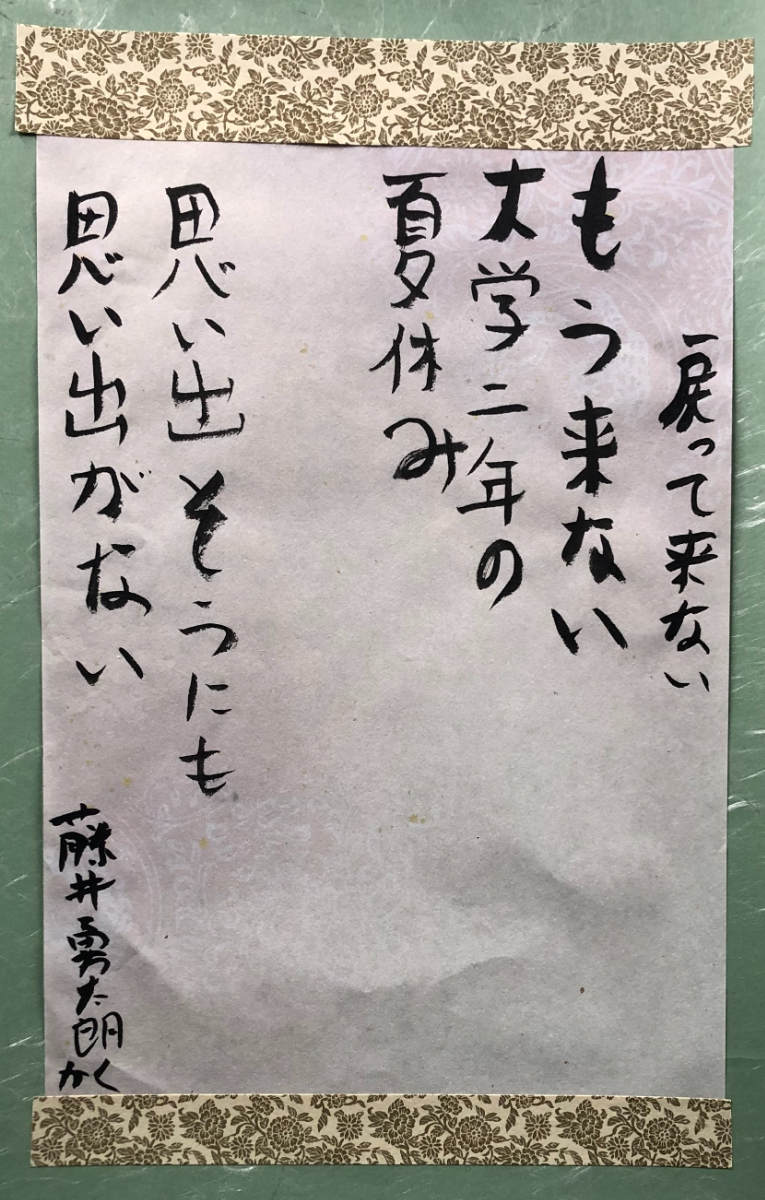 戻って来ない
もう来ない
大学二年の
夏休み
思い出そうにも
思い出がない
藤井勇太朗
かく